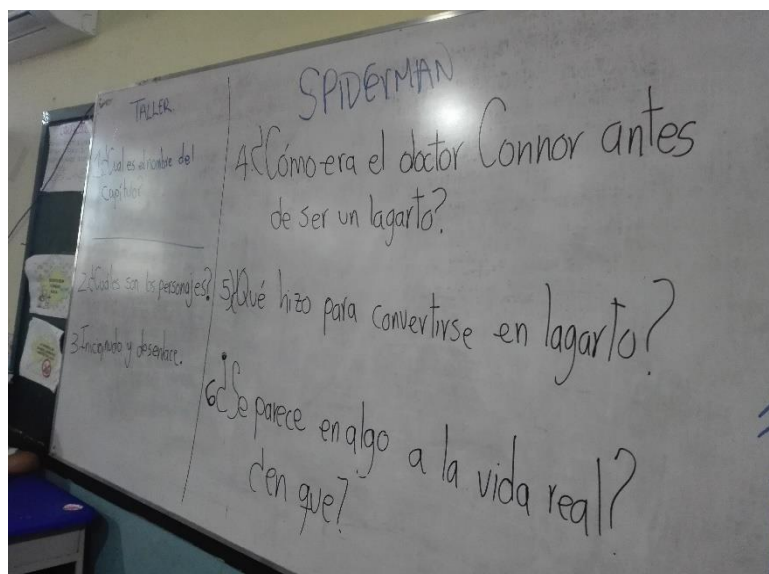 TALLER
1.¿Cual es el nombre del
Capitulo?
2.¿Cuáles son los personajes?
3.Inicio,nudo y desenlace.
SPIDERMAN
4.¿Cómo era el doctor Connor antes
de ser un lagarto?
5.¿Qué hizo para convertirse en lagarto?
6.¿Se parece en algo a la vida real?
¿en que?